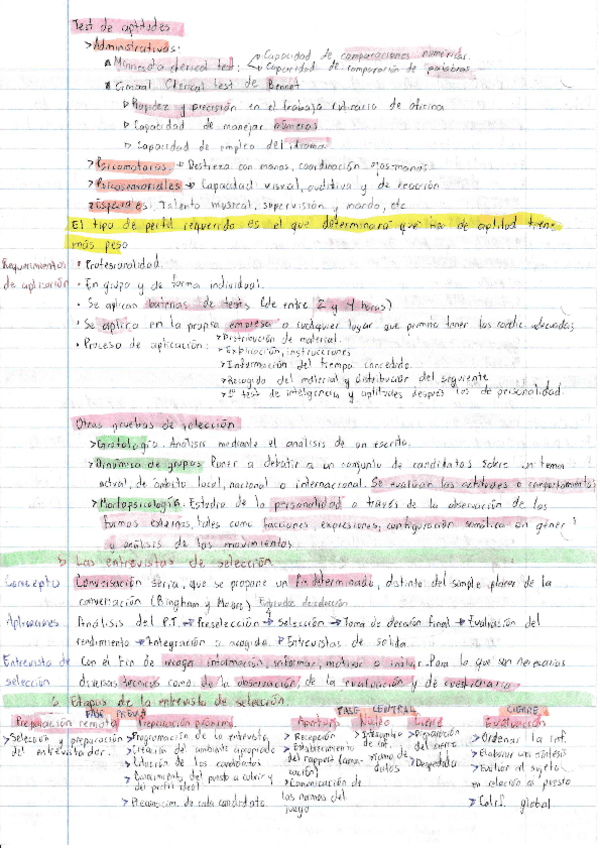 Test de aptitudes
> Administrativas:
Minnesota clerical test: Capacidad de comparaciones numéricas.
Capacidad de comparación de palabras.
General Clerical test de Bennet
Rapidez y precisión en el trabajo rutinario de oficina
Capacidad de manejar números
Capacidad de empleo del idioma
> Psicomotoras → Destreza con manos, coordinación ojos-manos
> Psicosensoriales → Capacidad visual, auditiva y de reacción
Talento musical, supervisión y mando, etc
El tipo de perfil requerido es el que determinará qué tipo de aptitud tiene
más peso
Requerimientos de aplicación
• Profesionalidad.
• En grupo y de forma individual.
• Se aplican baterías de tests (de entre 2 y 4 horas)
• Se aplica en la propia empresa o cualquier lugar que permita tener las condic. adecuadas
• Proceso de aplicación: > Distribución de material.
> Explicación, instrucciones
> Información del tiempo concedido.
> Recogida del material y distribución del siguiente
> 1º test de inteligencia y aptitudes después los de personalidad.
Otras pruebas de selección
> Grafología. Análisis mediante el análisis de un escrito.
> Dinámica de grupos Poner a debatir a un conjunto de candidatos sobre un tema
actual, de ámbito local, nacional o internacional. Se evalúan las actitudes o comportamientos
> Morfopsicología. Estudio de la personalidad a través de la observación de las
formas externas, tales como facciones, expresiones, configuración somática en general
o análisis de los movimientos.
5 Las entrevistas de selección
Concepto Conversación seria, que se propone un fin determinado, distinto del simple placer de la
conversación (Bingham y Moore)
Aplicaciones Análisis del P.T. → Preselección → Selección → Toma de decisión final → Evaluación del
rendimiento → Integración o acogida → Entrevistas de salida.
Entrevista de selección Con el fin de recoger información, informar, motivar o Para lo que son necesarias
diversas técnicas como de la observación, de la evaluación y de
Etapas de la entrevista de selección
FASE PREVIA FASE CENTRAL CIERRE
Preparación remota Preparación próxima Apertura Núcleo Cierre Evaluación
> Selección y preparación del entrevistador.
> Programación de la entrevista
> Creación del ambiente apropiado
> Citación de los candidatos
> Conocimiento del puesto a cubrir y del perfil ideal
> Preparación de cada candidato.
> Recepción
> Establecimiento del rapport
> Comunicación de las normas del juego
> Intercambio de inf.
datos
> Preparación del cierre
> Despedida
> Ordenar la inf.
> Elaborar una síntesis
> Evaluar al sujeto en relación al puesto
> Calif. global